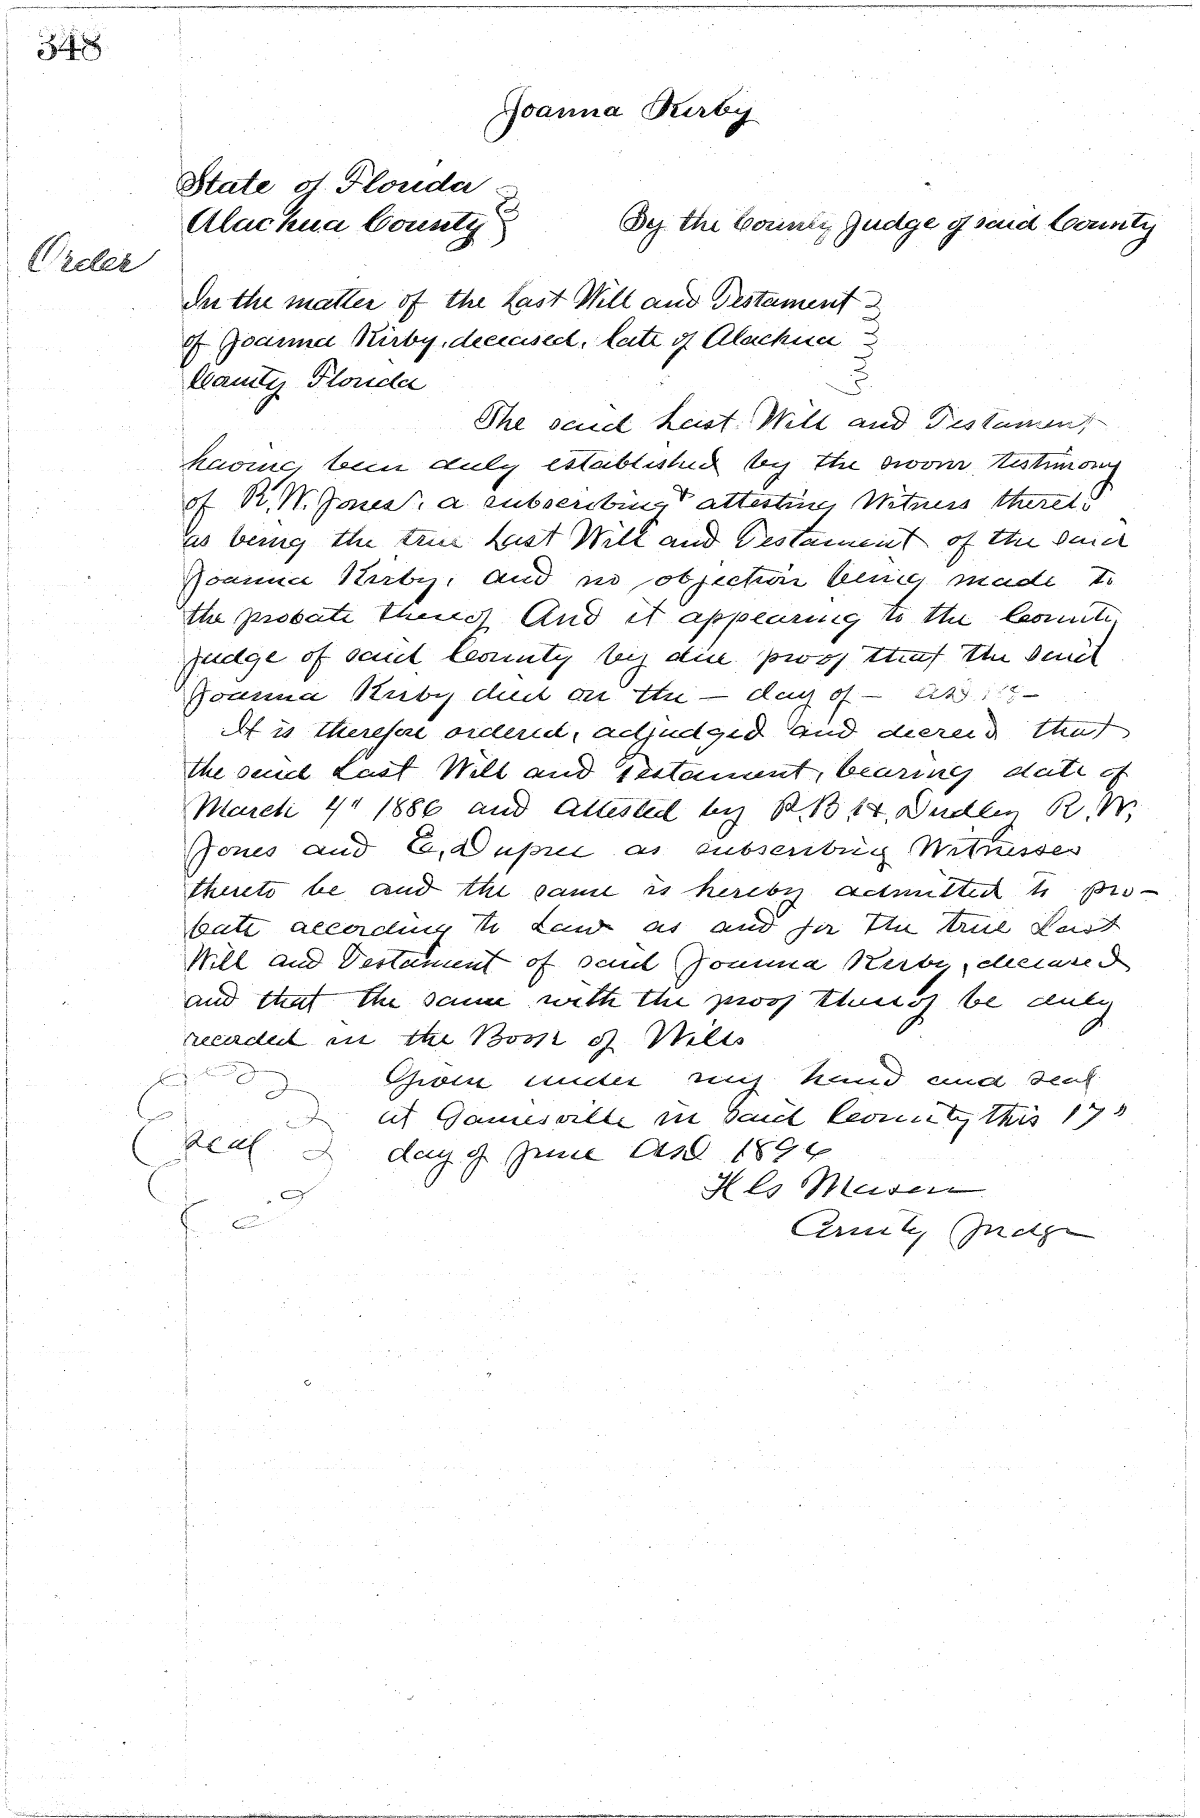 348
Joanna Kirby
State of Florida
Alachua County
By the County Judge of said County
Order
In the matter of the Last Will and Testament
of Joanna Kirby, deceased, late of Alachua
County Florida
The said Last Will and Testament
having been duly established by the sworn testimony
of R. W. Jones, a subscribing & attesting Witness thereto
as being the true Last Will and Testament of the said
Joanna Kirby, and no objection being made to
the probate thereof And it appearing to the County
Judge of said County by due proof that the said
Joanna Kirby died on the — day of —
It is therefore ordered, adjudged and decreed that
the said Last Will and Testament, bearing date of
March 4" 1886 and attested by R. B. H. Dudley R. W.
Jones and E. Dupree as subscribing Witnesses
thereto be and the same is hereby admitted to pro-
bate according to Law as and for the true Last
Will and Testament of said Joanna Kirby, deceased
and that the same with the proof thereof be duly
recorded in the Book of Wills
Given under my hand and seal
at Gainesville in said County this 17"
seal
day of June AD 189
Mason
County Judge